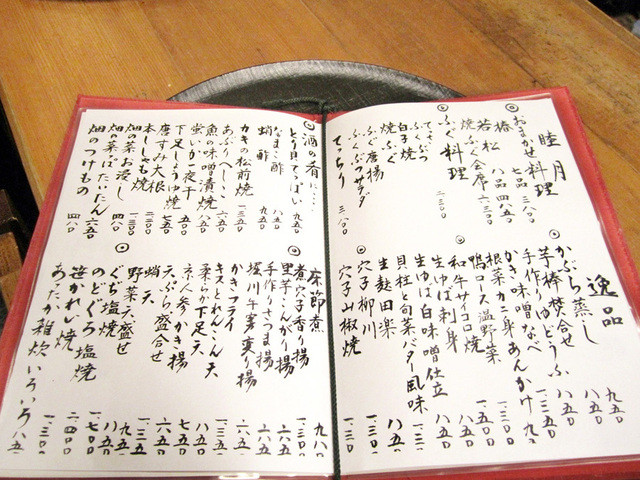 睦月
おまかせ料理
椿 七品 三八〇〇
若松 八品 四八五〇
焼ふぐ会席 六三〇〇
ふぐ料理
てっさ 二三〇〇
白子焼
焼ふぐ
ふぐ唐揚
ふぐサラダ
てっちり 三八〇〇
逸品
かぶら蒸し 九五〇
芋棒焚合せ 八五〇
手作りゆどうふ 八五〇
かき味噌なべ 一、三五〇
根菜カニ身あんかけ 九五〇
鴨ロース温野菜 一、五〇〇
和牛サイコロ焼
生ゆば刺身 八五〇
生ゆば白味噌仕立
貝柱と旬菜バター風味
生麩田楽 八五〇
穴子柳川 一、三〇〇
穴子山椒焼 一、三〇〇
酒の肴に……
とり貝てっぱい 九五〇
なまこ酢 八五〇
蛸酢 八五〇
カキの松前焼 一、三五〇
あぶりへしこ 六五〇
魚の味噌漬焼 八五〇
蛍いか一夜干 五〇〇
下足しょうゆ焼 七五〇
唐すみ大根 二二〇〇
本ししゃも焼 一五〇〇
畑のお浸し 一、三〇〇
畑の菜っぱたいたん 六五〇
畑のつけもの 四八〇
床節煮 九八〇
煮穴子香り揚 一、三〇〇
里芋こんがり揚 六八五
手作りさつま揚
堀川牛蒡変り揚
かきフライ
キスとれんこん天 一、三五〇
柔らか下足天 八五〇
にん人参かき揚 七五〇
天ぷら盛合せ
蛸天
野菜天盛せ
ぐぢ塩焼
のどぐろ塩焼 一、七〇〇
笹かれい焼 二四〇〇
あったか雑炊いろいろ 八五〇